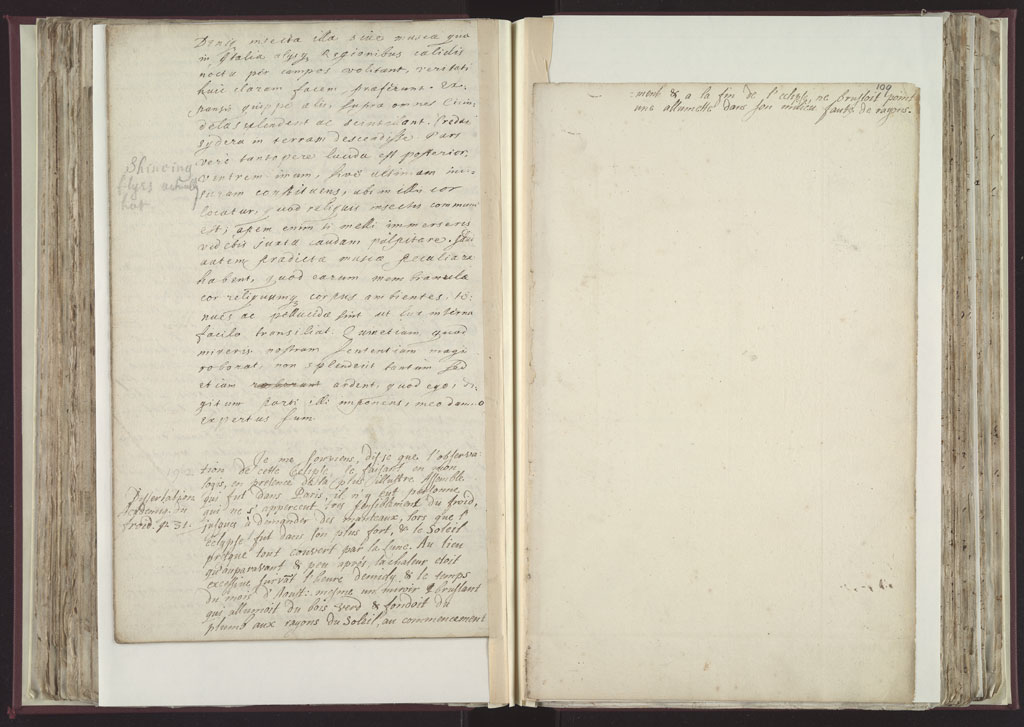 Denique insecta illa sive musca qua
in Italia alysq Regionibus calidis
noctu per campos volitant, veritati
huic claram facem praeferunt. Ex-
pansis quippe alis, supra omnes Cicin-
delas splendent ac scintillant. Credas
sydera in terram descendisse Pars
vero tantopere lucida est posterior,
ventrem imum, sive ultimam inci-
suram constituens, ubi in illis cor
locatur, quod reliquis insectis commune
est, apem enim si melli immerseris
videbis juxta caudam palpitare.
autem praedicta musca peculiare
habent, quod earum membranula
cor reliquumq corpus ambientes te-
nues ac pellucida sint ut lux interna
facile transiliat. Quin etiam quod
mireris nostram sententiam magis
roborat, non splendent tantum sed
etiam roborant ardent, quod ego di-
gitum parti illi imponens, meo damno
expertus sum.
Shineing
flyes actually
hot
Je me souviens, disse que l'observa-
tion de cette Eclipse, se faisant en mon
logis, en presence de la plus illustre Assemblée
qui fut dans Paris, il n'y eut personne
qui ne s'apperceut tres sensiblement du froid,
jusques à demander des manteaux, lors que l'
eclypse fut dans son plus fort, & le Soleil
presque tout couvert par la Lune. Au lieu
qu'auparavant & peu apres, la chaleur estoit
excessive survant l'heure de midy, & le temps
du mois d'Aoust: mesme un miroir brustant
qui allumoit du bois verd & fondoit du
plumb aux rayons du Soleil, au commencement
Dissertation
Academ. du
froid. p. 31.
100
-ment & a la fin de l'eclipse, ne brusloit point
une allumette dans son milieu faute de rayons.